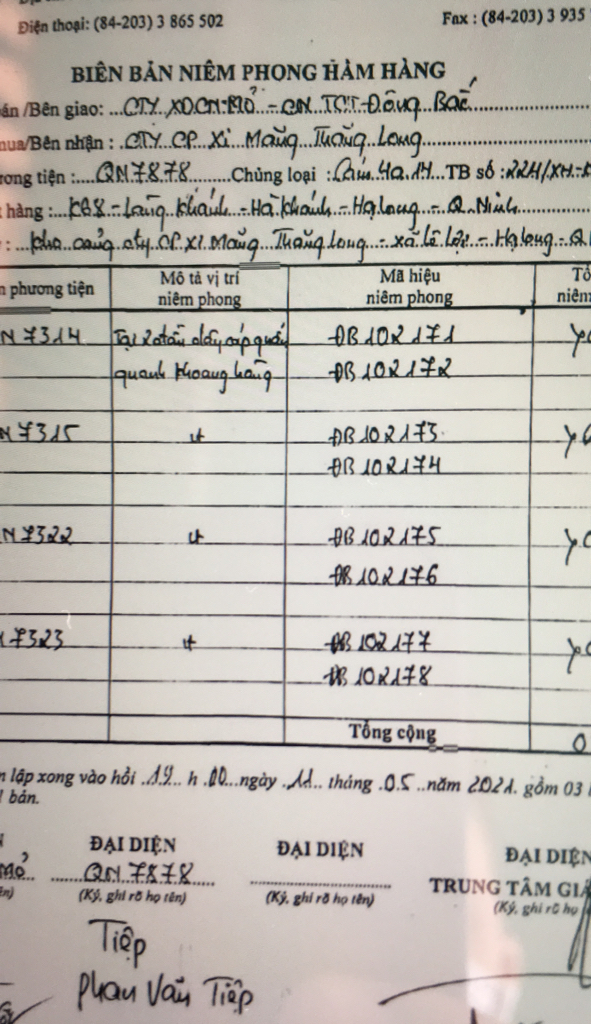 Điện thoại: (84-203) 3 865 502 Fax : (84-203) 3 935
BIÊN BẢN NIÊM PHONG HÀM HÀNG
án /Bên giao: CTY XDCN Mỏ - CN TCT Đông Bắc
mua/Bên nhận : CTY CP Xi Măng Thăng Long
ương tiện : QN7878 Chủng loại : Cám 4a.14 TB số : 22H/XH-K
hàng : KB8 - Làng Khánh - Hà Khánh - Hạ Long - Q. Ninh
: kho cảng cty CP XI Măng Thăng Long - xã Lê Lợi - Hạ Long - Q
phương tiện Mô tả vị trí niêm phong Mã hiệu niêm phong Tổ niêm
N 7314 Tại 2 đầu dây cáp quấn ĐB 102171
quanh khoang hàng ĐB 102172
N 7315 nt ĐB 102173
ĐB 102174
N 7322 nt ĐB 102175
ĐB 102176
7323 nt ĐB 102177
ĐB 102178
Tổng cộng 0
n lập xong vào hồi 19 h 00 ngày 11 tháng 05 năm 2021. gồm 03
bản.
ĐẠI DIỆN ĐẠI DIỆN ĐẠI DIỆN
Mỏ QN 7878 TRUNG TÂM GIÁ
(Ký, ghi rõ họ tên) (Ký, ghi rõ họ tên) (Ký, ghi rõ họ
Tiệp
Phan Văn Tiệp